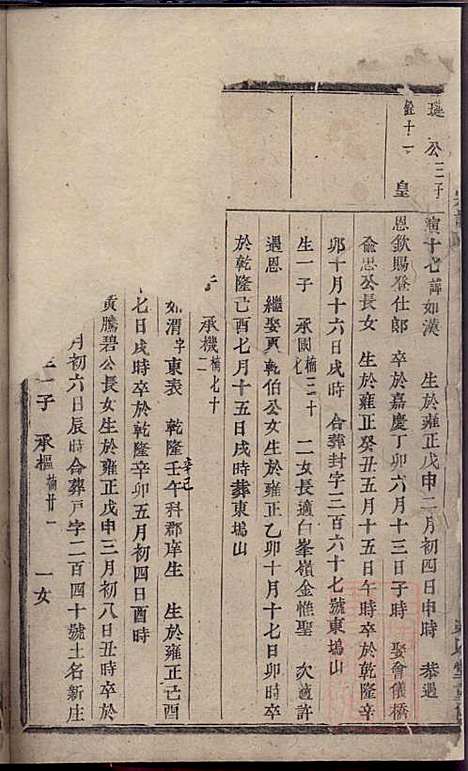 璇公三子
皇
演十七諱如漢 生於雍正戊申二月初四日申時 恭遇
恩欽賜登仕郎 卒於嘉慶丁卯六月十三日子時 娶會儀橋
俞思公長女 生於雍正癸丑五月十五日午時卒於乾隆辛
卯十月十六日戌時 合葬封字三百六十七號東塢山
生一子 承國楠三十七 二女長適白峯嶺金惟聖 次適許
遇恩 繼娶賈乾伯公女生於雍正乙卯十月十七日卯時卒
於乾隆己酉七月十五日戌時葬東塢山
子 承機楠七十二
如渭字東表 乾隆壬午辛巳科郡庠生 生於雍正己酉
七日戌時卒於乾隆辛卯五月初四日酉時
黃騰碧公長女生於雍正戊申三月初八日丑時卒於
月初六日辰時合葬戸字二百四十號土名新庄
生一子 承樞楠廿一 一女